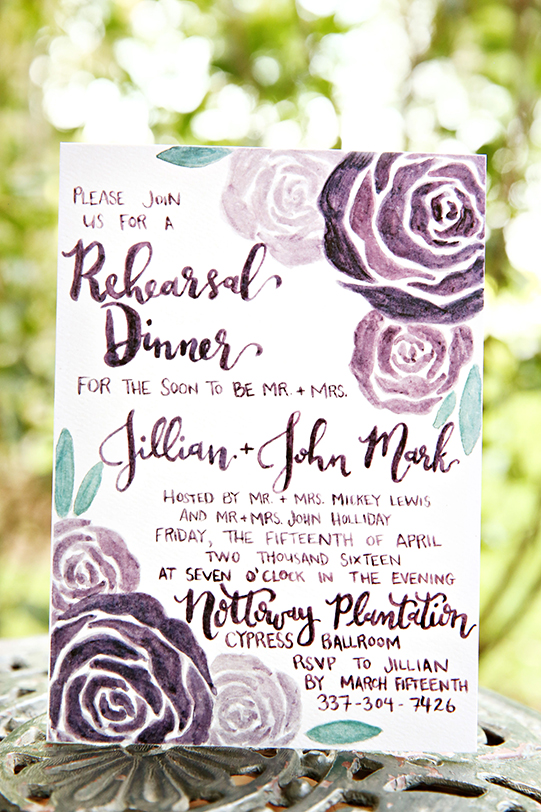 PLEASE JOIN
US FOR A
Rehearsal
Dinner
FOR THE SOON TO BE MR. + MRS.
Jillian + John Mark
HOSTED BY MR. + MRS. MICKEY LEWIS
AND MR + MRS. JOHN HOLLIDAY
FRIDAY, THE FIFTEENTH OF APRIL
TWO THOUSAND SIXTEEN
AT SEVEN O'CLOCK IN THE EVENING
Nottoway Plantation
CYPRESS BALLROOM
RSVP TO JILLIAN
BY MARCH FIFTEENTH
337-304-7426